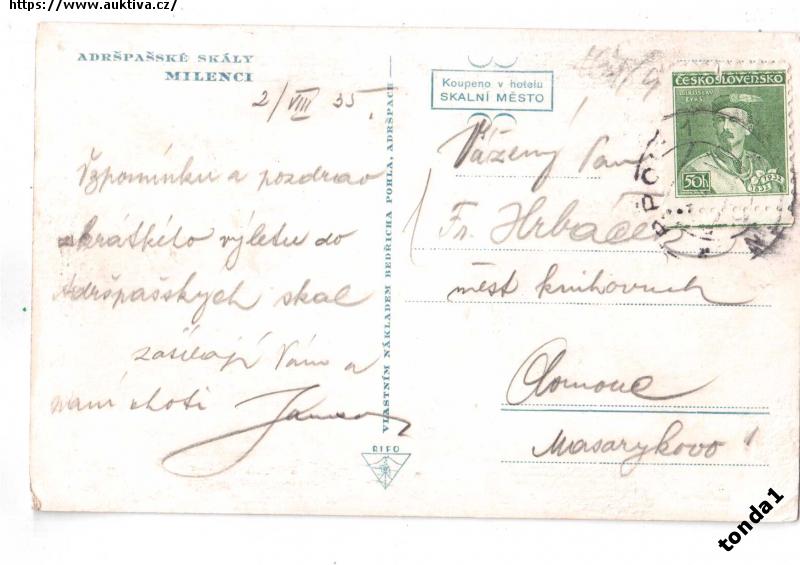 https://www.auktiva.cz/
ADRŠPAŠSKÉ SKÁLY
MILENCI
2/VIII 35.
Vzpomínku a pozdrav
z krátkého výletu do
Adršpašských skal
zasílají Vám a
paní choti
VLASTNÍM NÁKLADEM BEDŘICHA POHLA, ADRŠPACH
RIFO
Koupeno v hotelu
SKALNÍ MĚSTO
ČESKOSLOVENSKO
MIROSLAV
TYRŠ
50h
1932
1832
Vážený Pan
Fr. Hrbáček
měst. knihovník
Olomouc
Masarykovo
tonda1